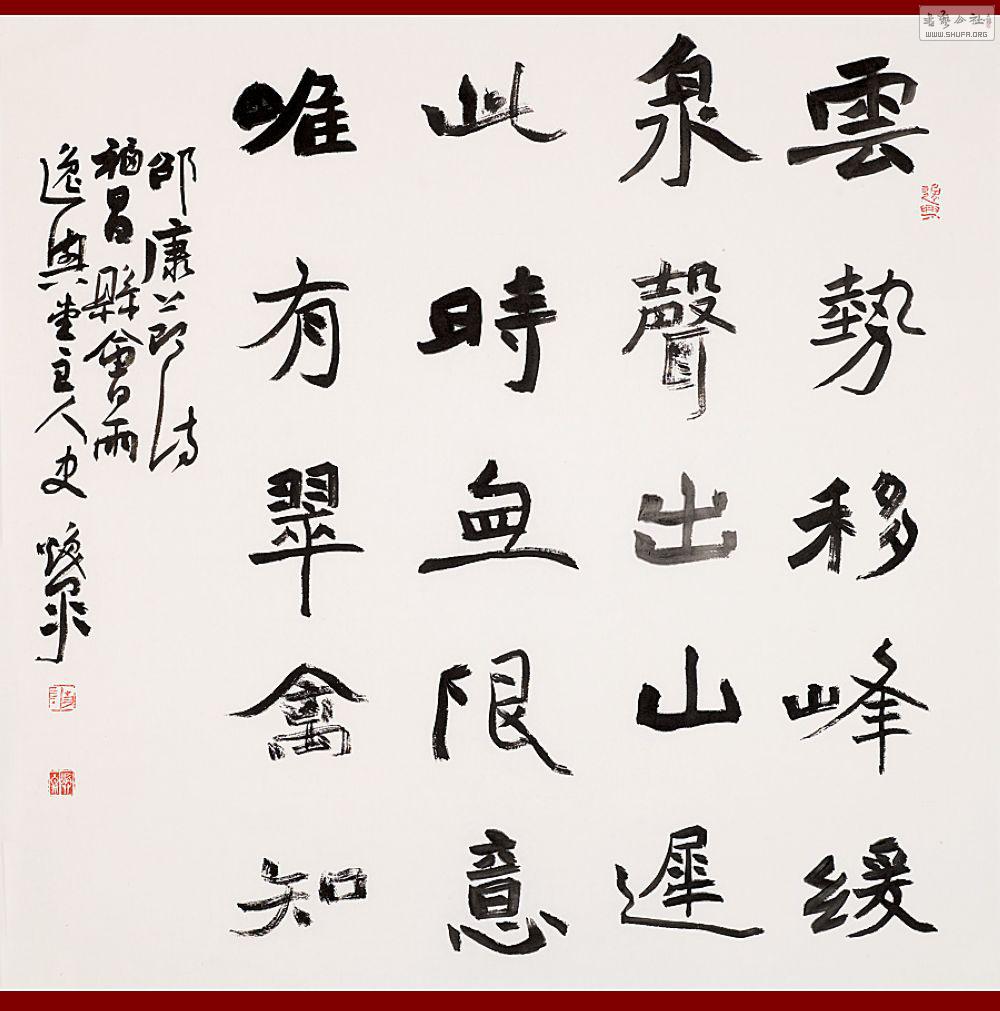 書藝公社
WWW.SHUFA.ORG
雲勢移峰緩
泉聲出山遲
此時無限意
唯有翠禽知
邵康節詩
福昌縣會雨
逸興堂主人史
逸興